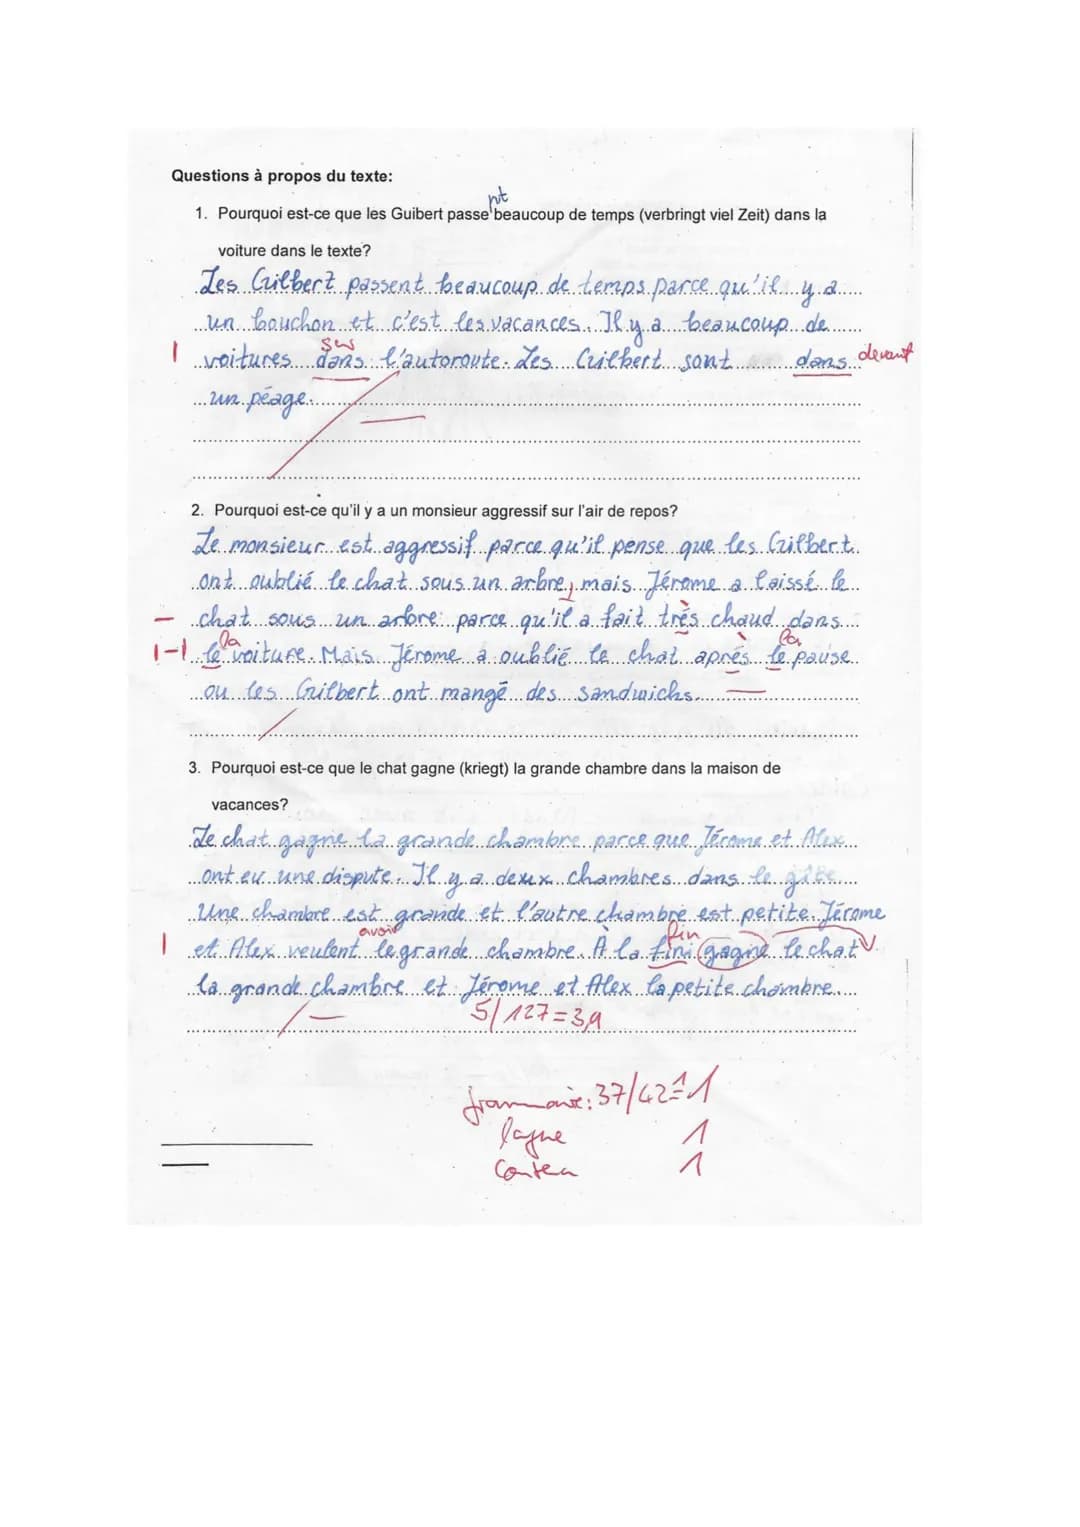 Questions à propos du texte:
nt
1. Pourquoi est-ce que les Guibert passe beaucoup de temps (verbringt viel Zeit) dans la
voiture dans le texte?
Les Guilbert passent beaucoup de temps parce qu'il y a
un bouchon et c'est les vacances. Il y a beaucoup de
sur
I voitures dans l'autoroute. Les Guilbert sont dans devant
un péage.
2. Pourquoi est-ce qu'il y a un monsieur aggressif sur l'air de repos?
Le monsieur est aggressif parce qu'il pense que les Guilbert
ont oublié le chat sous un arbre, mais Jérome a laissé le
– chat sous un arbre parce qu'il a fait trés chaud dans
la la
I-I le voiture. Mais Jérome a oublié le chat aprés le pause
ou les Guilbert ont mangé des sandwichs.
3. Pourquoi est-ce que le chat gagne (kriegt) la grande chambre dans la maison de
vacances?
Le chat gagne la grande chambre parce que Jérome et Alex
ont eu une dispute. Il y a deux chambres dans le gîte.
Une chambre est grande et l'autre chambre est petite. Jérome
avoir fin
I et Alex veulent le grande chambre. À la fini gagne le chat
la grande chambre et Jérome et Alex la petite chambre.
5/127=3,9
grammaire: 37/42=1 1
1
1